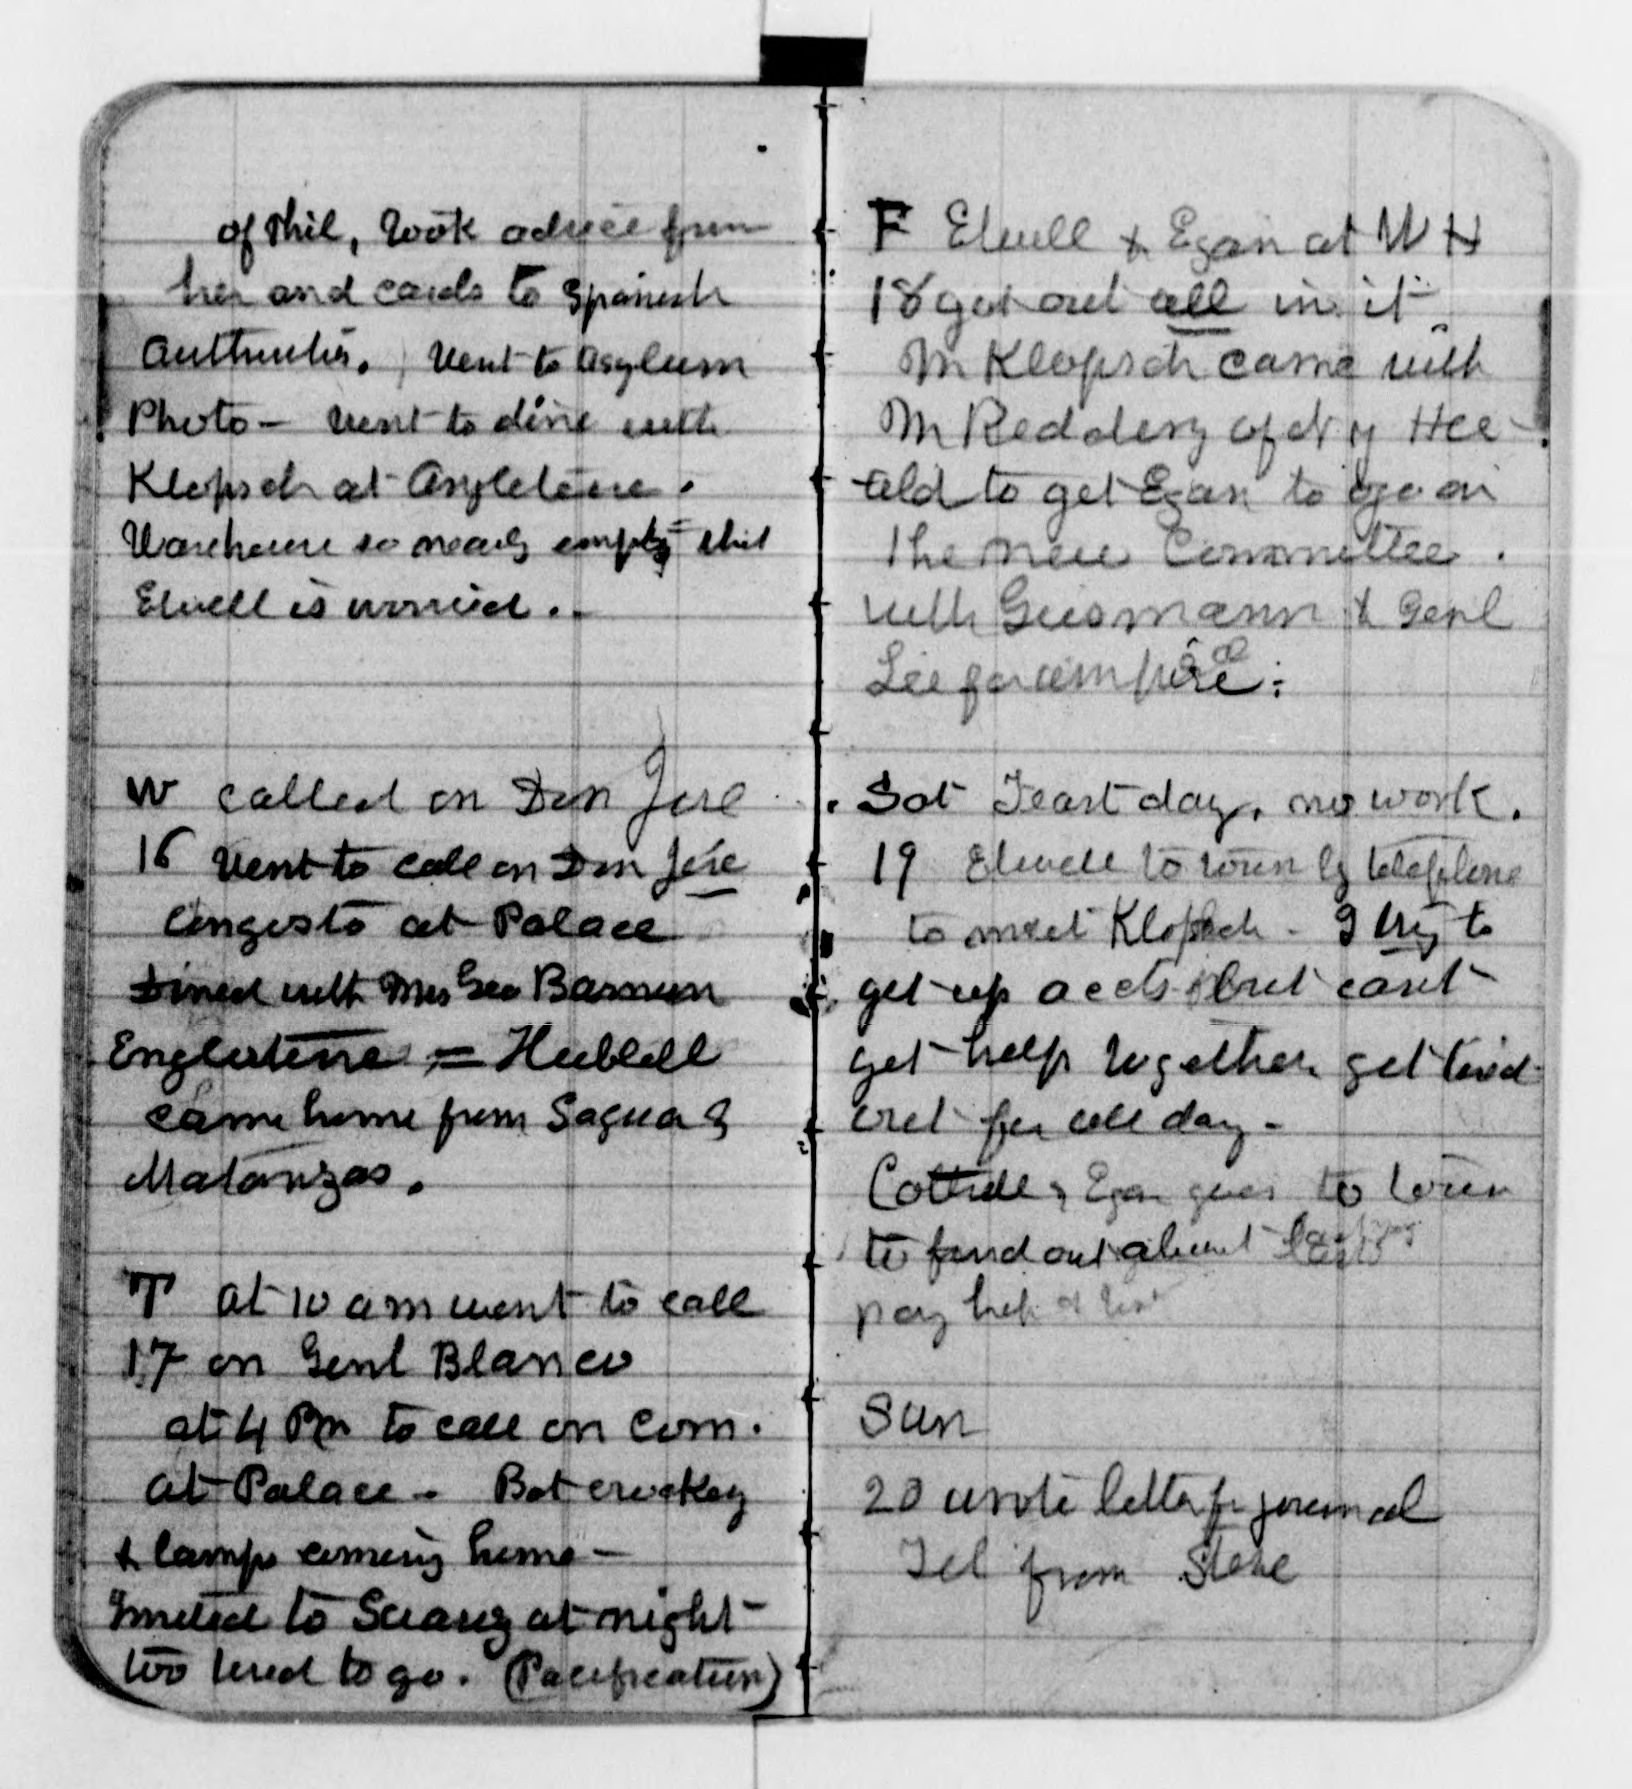 of Phil, Took advice from
her and cards to Spanish
Authorities. Went to Asylum
Photo - Went to dine with
Klopsch at Angleterre.
Warehouse so nearly empty that
Elwell is worried.
W called on Don Jose
16 Went to call on Don Jose
Congosto at Palace
Dined with Mrs Geo Barnum
Engleterre = Hubbell
came home from Sagua &
Matanzas.
T at 10 am went to call
17 on Genl Blanco
at 4 Pm to call on Com.
at Palace - Bot crockery
& lamps coming home -
Invited to Suarez at night
too tired to go. (Pacification)
F Elwell & Egan at W H
18 get out all in it
Mr Klopsch came with
Mr Reddery of N y Her
ald to get Egan to go on
the new Committee.
with & Genl
Lee for umpire.
Sat Feast day, no work.
19 Elwell to town by telephone
to meet Klopsch - I try to
get up accts but cant
get help together get tired
out for all day -
Cottrell & Egan goes to town
to find out about
pay help
Sun
20 wrote letter for journal
Tel from